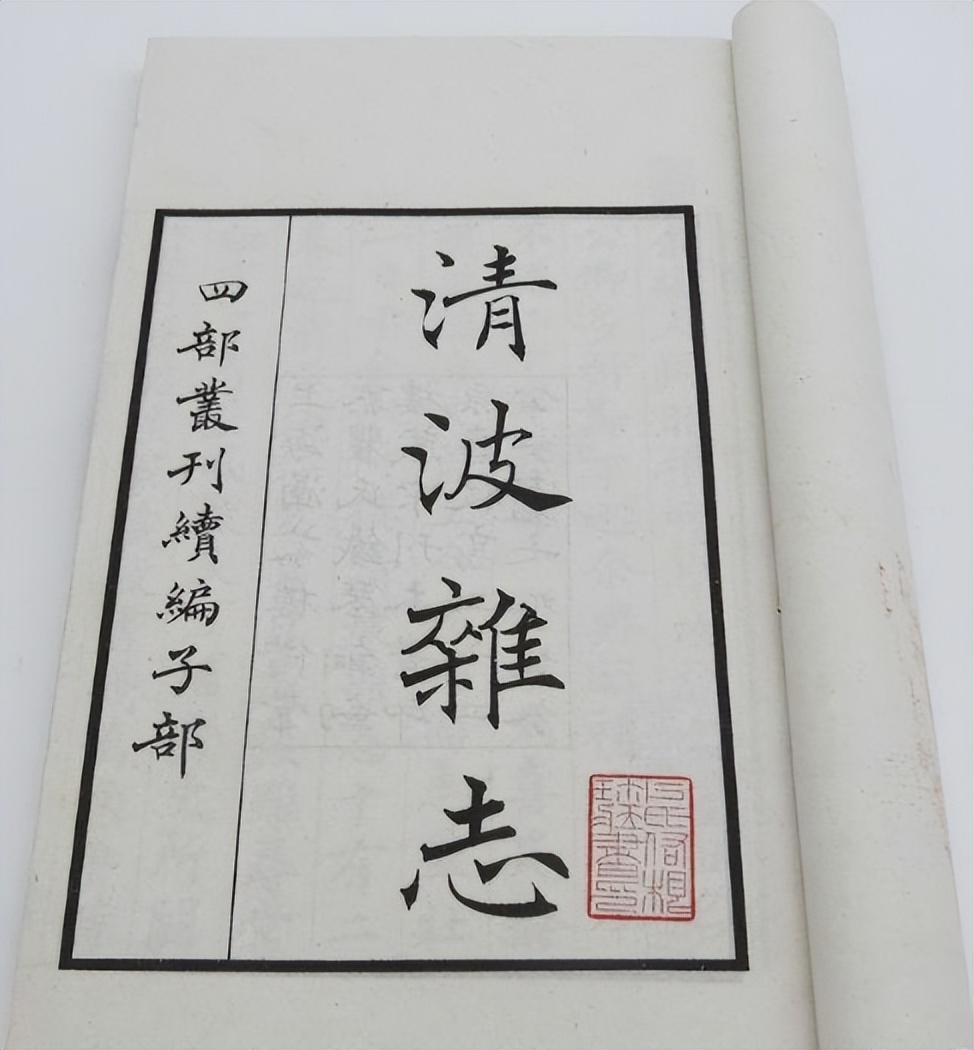 清波雜志
四部叢刊續編子部